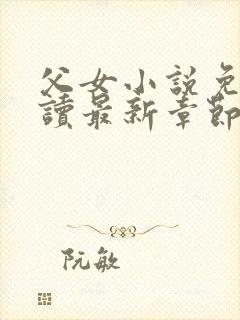 父女小說免
讀最新章節
阮敏